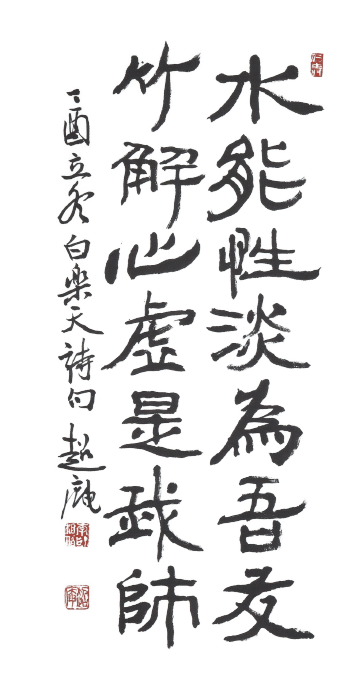 水能性淡為吾友
竹解心虚是我師
丁酉立冬白楽天詩句 超